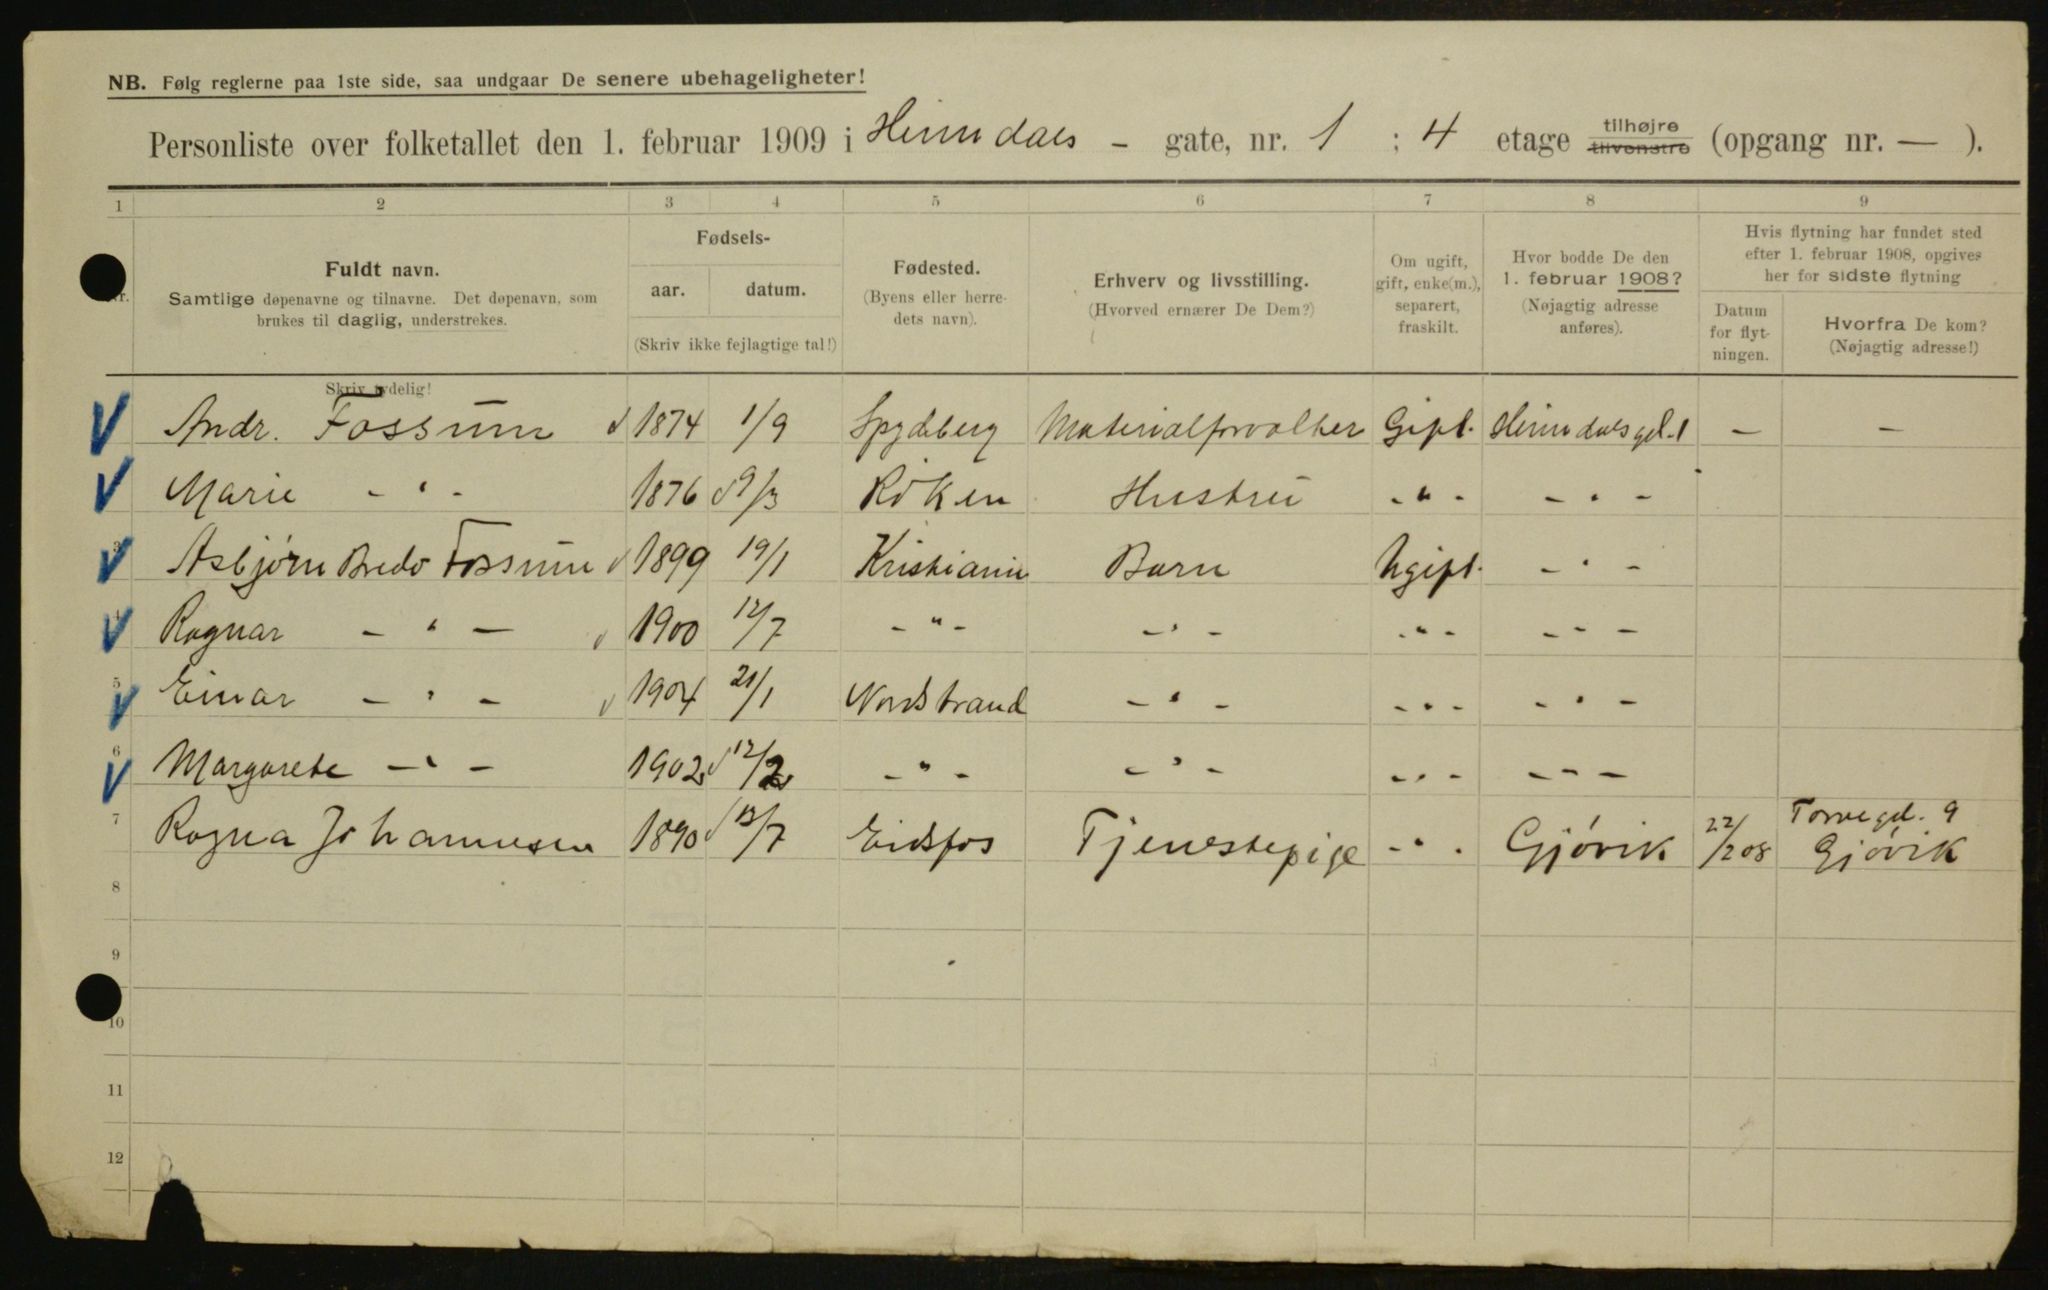 NB. Følg reglerne paa 1ste side, saa undgaar De senere ubehageligheter!
Personliste over folketallet den 1. februar 1909 i Heimdals - gate, nr. 1 ; 4 etage tilhøjre tilvenstre (opgang nr. — ).
1 2 3 4 5 6 7 8 9
Nr.
Fuldt navn.
Samtlige døpenavne og tilnavne. Det døpenavn, som
brukes til daglig, understrekes.
Skriv tydelig!
Fødsels-
aar. datum.
(Skriv ikke fejlagtige tal!)
Fødested.
(Byens eller herre-
dets navn).
Erhverv og livsstilling.
(Hvorved ernærer De Dem?)
Om ugift,
gift, enke(m.),
separert,
fraskilt.
Hvor bodde De den
1. februar 1908?
(Nøjagtig adresse
anføres).
Hvis flytning har fundet sted
efter 1. februar 1908, opgives
her for sidste flytning
Datum
for flyt-
ningen.
Hvorfra De kom?
(Nøjagtig adresse!)
Andr. Fossum 1874 1/9 Spydeberg Materialforvalter Gift. Heimdalsgd. 1 — —
Marie - " - 1876 9/3 Røken Hustru - " - - " -
3 Asbjørn Bredo Fossum 1899 19/1 Kristiania Barn Ugift. - " -
4 Ragnar - " - 1900 12/7 - " - - " - - " - - " -
5 Einar - " - 1904 21/1 Nordstrand - " - - " - - " -
6 Margarete - " - 1902 12/2 - " - - " - - " - - " -
7 Ragna Johannesen 1890 13/7 Eidsfos Tjenestepige - " - Gjøvik 22/2 08 Torvegd. 9
Gjøvik
8
9
10
11
12